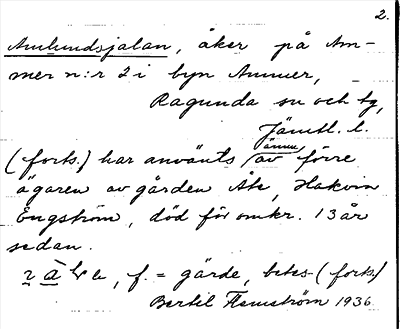 2.
Amlundsjalan, åker på Am-
mer n:r 2 i byn Ammer,
Ragunda sn och tg,
Jämtl. l.
(forts.) har använts även av förre
ägaren av gården Åke, Håkvin
Engström, död för omkr. 13 år
sedan.
f. = gärde, betes- (forts.)
Bertil Flemström 1936.